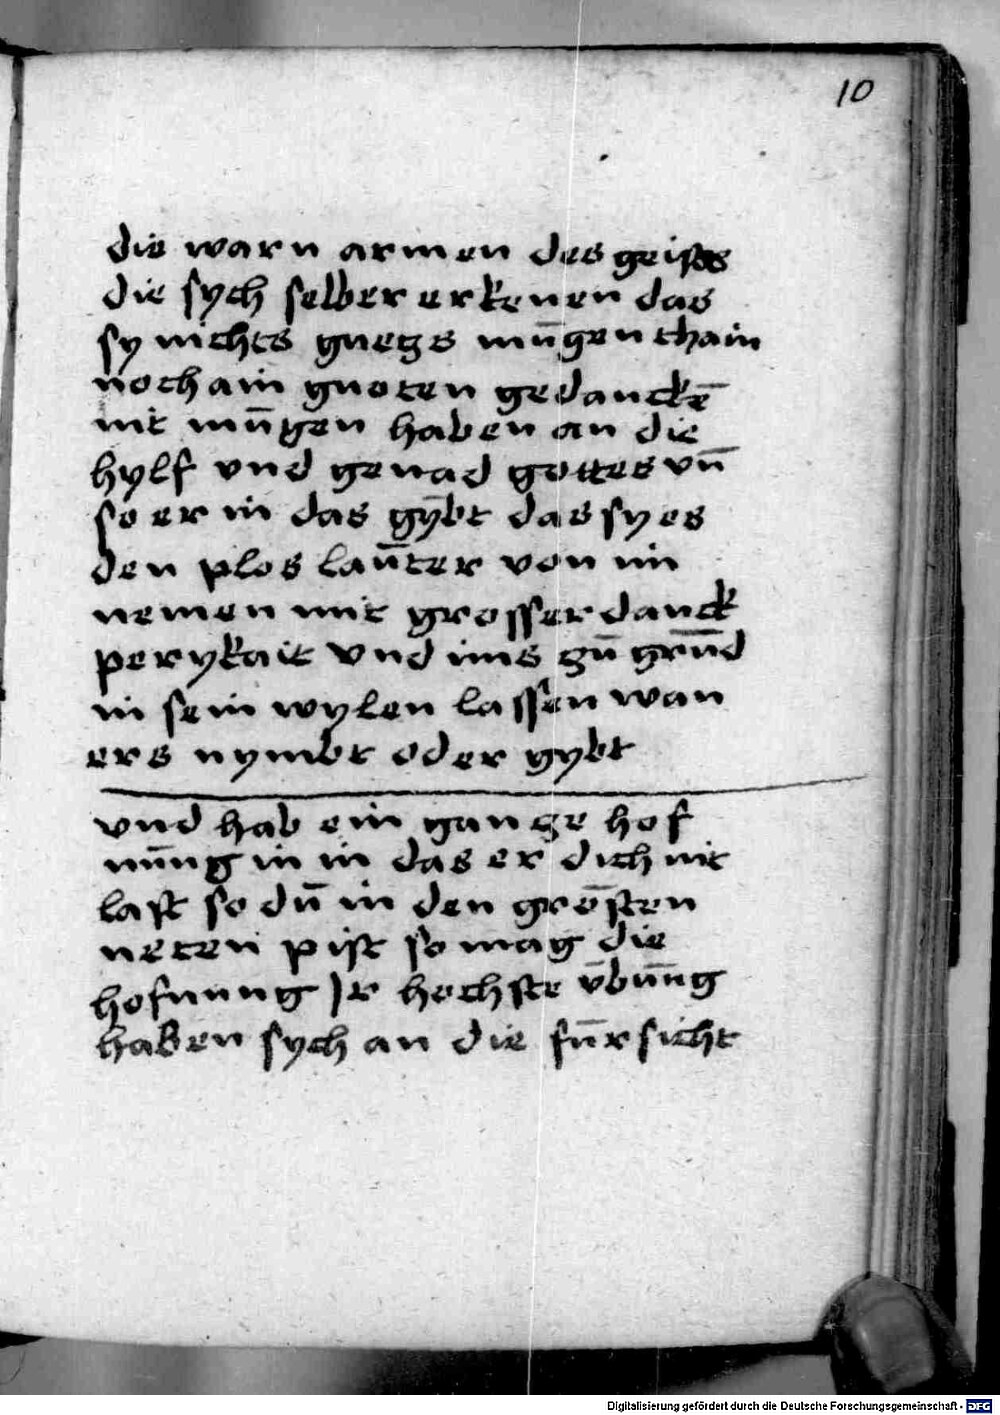 10
die warn armen des geistes
die sych selber erkenen das
sy nichts guetz mu̅gen thain
noch ain guoten gedancke̅
nit mu̅gen haben an die
hylf vnd genad gottes vn̅
so er in das gy̅bt das sy es
den plos lau̅ter von im
nemen mit grosser danck
perykait vnd ims gu̅ gru̅d
in sein wylen lassen wan
ers nymbt oder gybt
vnd hab ein gantze hof
nu̅ng in in das er dich nit
last so du̅ in den gro̅sten
neten pist so mag die
hofnung Jr hochste v̅bu̅ng
haben sych an die fu̅rsicht
Digitalisierung gefördert durch die Deutsche Forschungsgemeinschaft - DFG